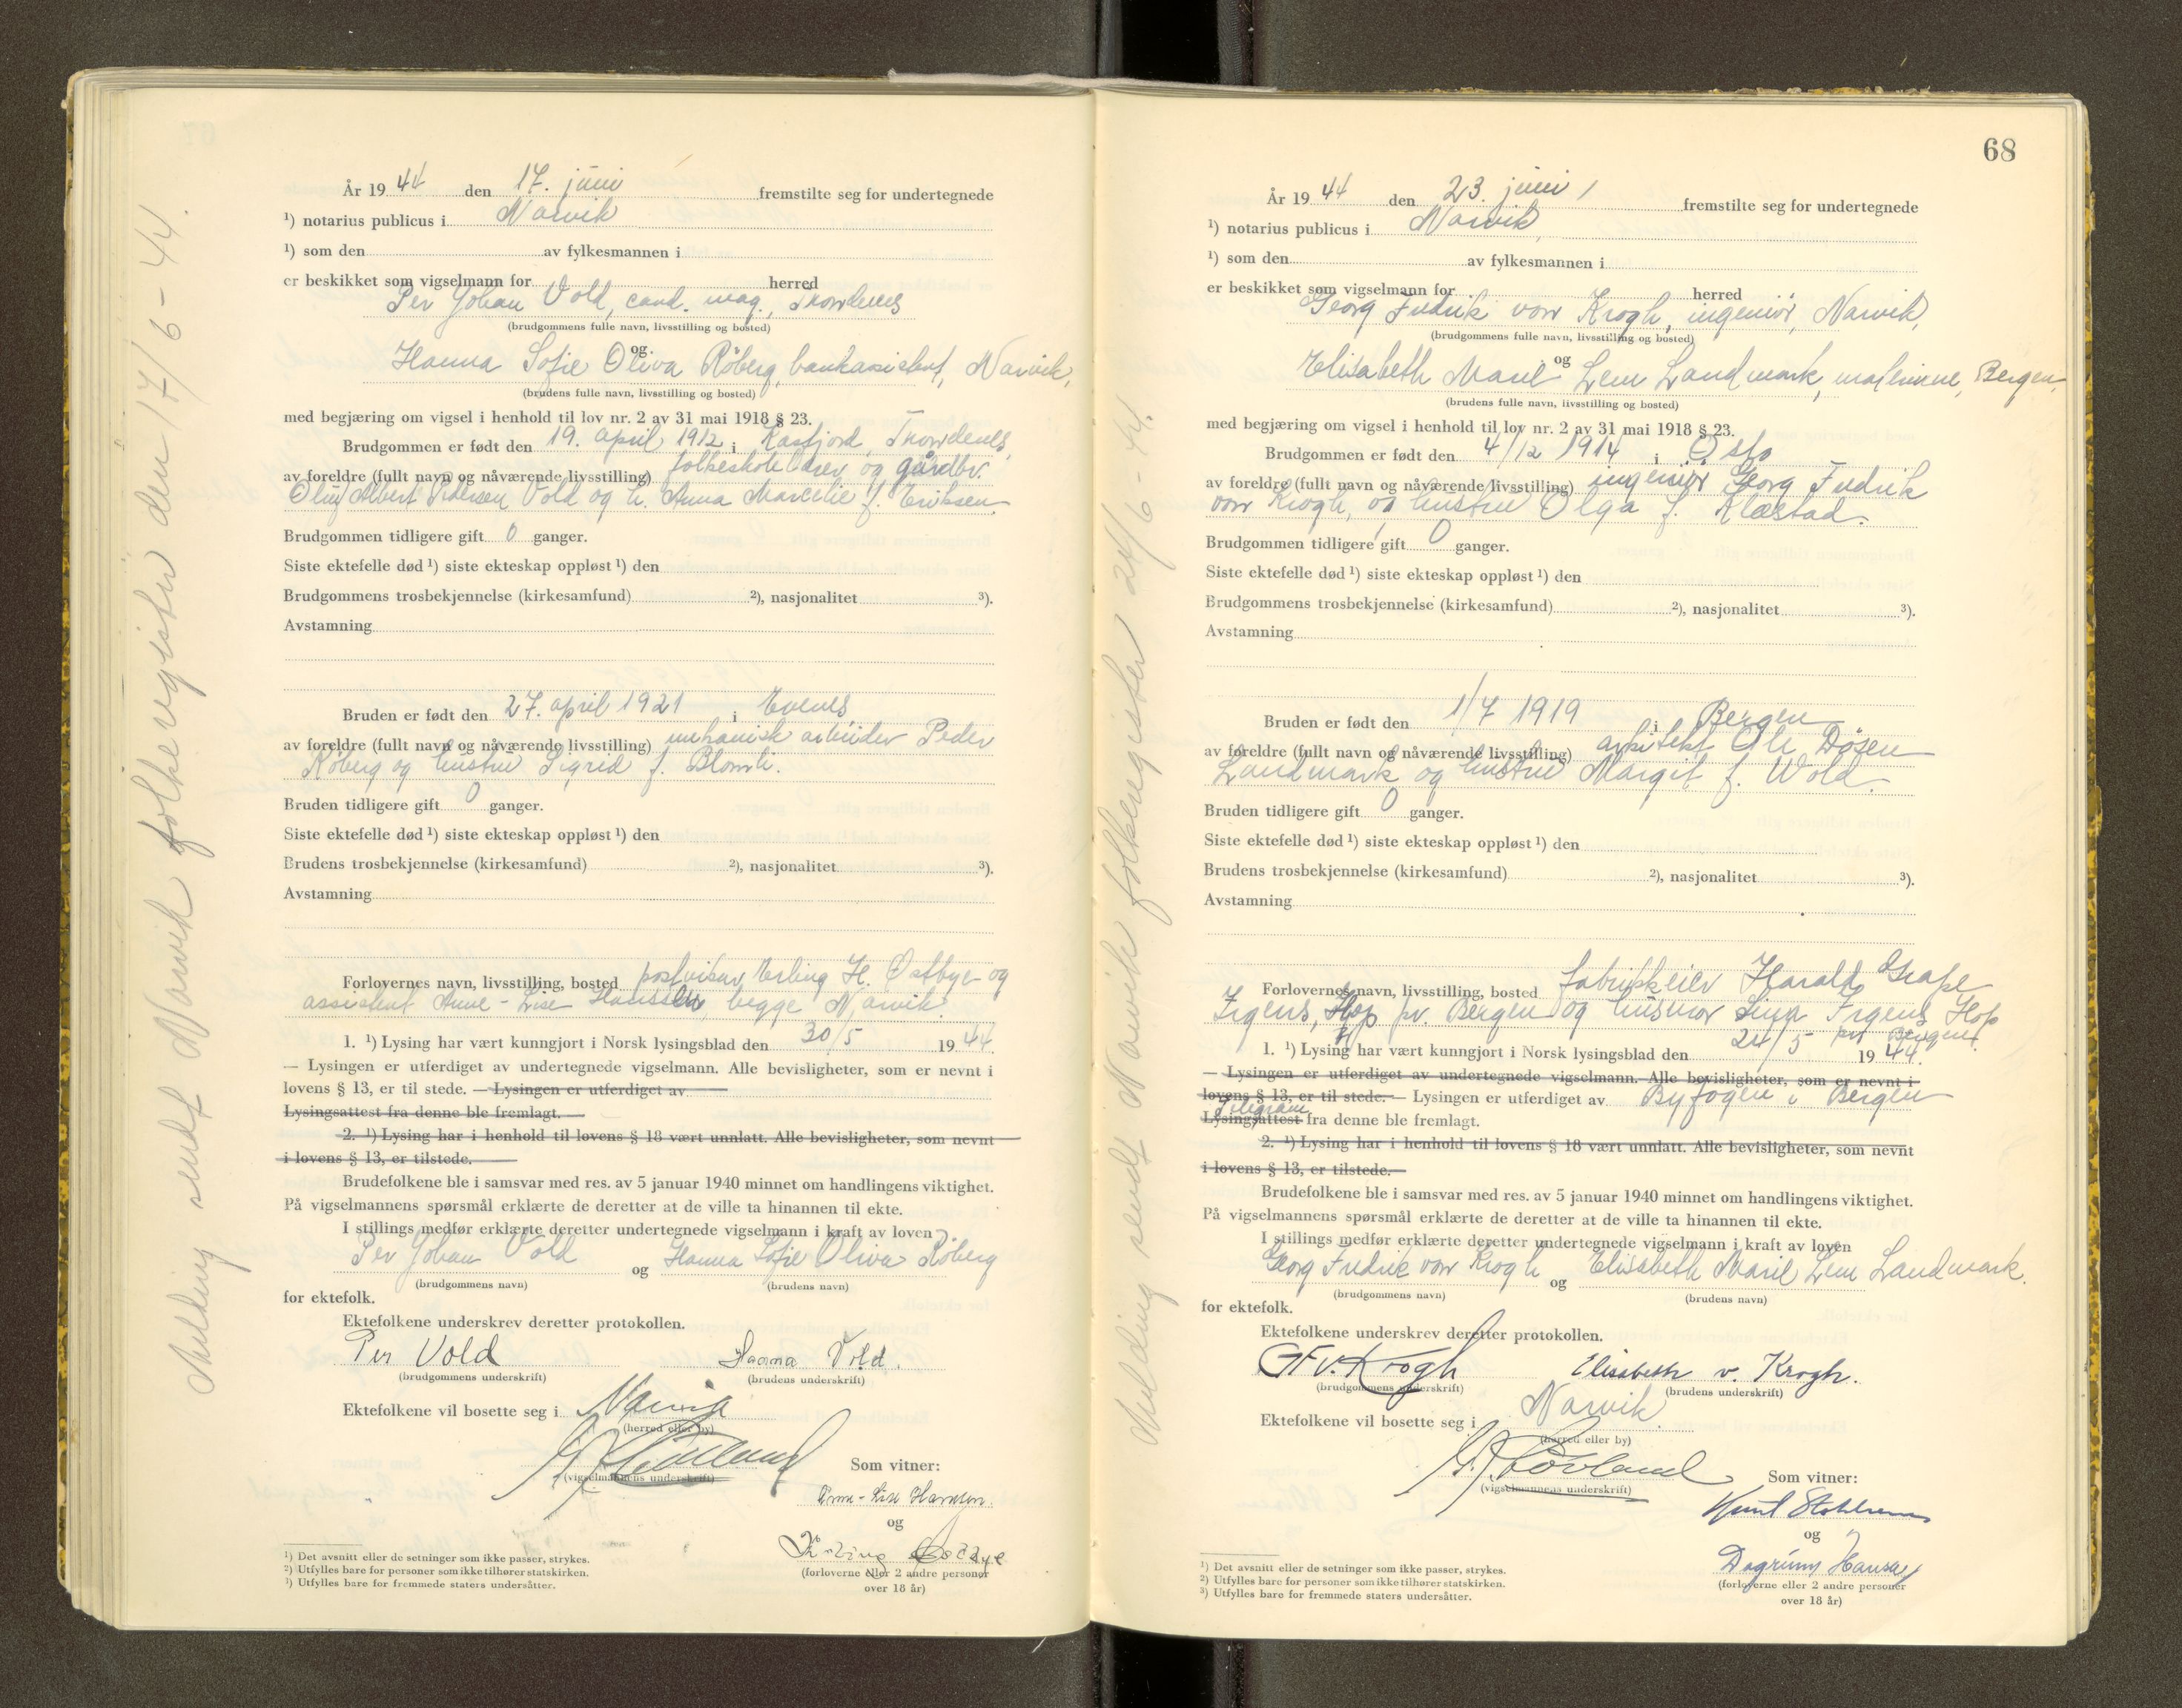 Melding sendt Narvik folkeregister den 17/6 - 44.
År 19 44 den 17. juni fremstilte seg for undertegnede
¹) notarius publicus i Narvik
¹) som den av fylkesmannen i
er beskikket som vigselmann for herred
Per Johan Vold, cand. mag., Trondenes
(brudgommens fulle navn, livsstilling og bosted)
og
Hanna Sofie Oliva Røberg, bankassistent, Narvik,
(brudens fulle navn, livsstilling og bosted)
med begjæring om vigsel i henhold til lov nr. 2 av 31 mai 1918 § 23.
Brudgommen er født den 19. april 1912 i Kasfjord, Trondenes,
av foreldre (fullt navn og nåværende livsstilling) folkeskolelærer og gårdbr.
Oluf Albert Pedersen Vold og h. Anna Marcelie f. Eriksen.
Brudgommen tidligere gift 0 ganger.
Siste ektefelle død ¹) siste ekteskap oppløst ¹) den
Brudgommens trosbekjennelse (kirkesamfund) ²), nasjonalitet ³).
Avstamning
Bruden er født den 27. april 1921 i Evenes
av foreldre (fullt navn og nåværende livsstilling) mekanisk arbeider Peder
Røberg og hustru Sigrid f. Blomli.
Bruden tidligere gift 0 ganger.
Siste ektefelle død ¹) siste ekteskap oppløst ¹) den
Brudens trosbekjennelse (kirkesamfund) ²), nasjonalitet ³).
Avstamning
Forlovernes navn, livsstilling, bosted Erling H. Østbye og
assistent Anne-Lise Hanssen, begge Narvik.
1. ¹) Lysing har vært kunngjort i Norsk lysingsblad den 30/5 19 44.
— Lysingen er utferdiget av undertegnede vigselmann. Alle bevisligheter, som er nevnt i
lovens § 13, er til stede. — Lysingen er utferdiget av
Lysingsattest fra denne ble fremlagt. —
2. ¹) Lysing har i henhold til lovens § 18 vært unnlatt. Alle bevisligheter, som nevnt
i lovens § 13, er tilstede.
Brudefolkene ble i samsvar med res. av 5 januar 1940 minnet om handlingens viktighet.
På vigselmannens spørsmål erklærte de deretter at de ville ta hinannen til ekte.
I stillings medfør erklærte deretter undertegnede vigselmann i kraft av loven
Per Johan Vold og Hanna Sofie Oliva Røberg
(brudgommens navn) (brudens navn)
for ektefolk.
Ektefolkene underskrev deretter protokollen.
Per Vold Hanna Vold.
(brudgommens underskrift) (brudens underskrift)
Ektefolkene vil bosette seg i Narvik
(herred eller by)
(vigselmannens underskrift)
Som vitner:
Anne-Lise Hanssen.
og
Erling Østbye
(forloverne eller 2 andre personer
over 18 år)
¹) Det avsnitt eller de setninger som ikke passer, strykes.
²) Utfylles bare for personer som ikke tilhører statskirken.
³) Utfylles bare for fremmede staters undersåtter.
68
Melding sendt Narvik folkeregister 24/6 - 44.
År 19 44 den 23. juni, fremstilte seg for undertegnede
¹) notarius publicus i Narvik,
¹) som den av fylkesmannen i
er beskikket som vigselmann for herred
Georg Fredrik von Krogh, ingeniør, Narvik,
(brudgommens fulle navn, livsstilling og bosted)
og
Elisabeth Marie Lem Landmark, malerinne, Bergen,
(brudens fulle navn, livsstilling og bosted)
med begjæring om vigsel i henhold til lov nr. 2 av 31 mai 1918 § 23.
Brudgommen er født den 4/12 1914 i Oslo
av foreldre (fullt navn og nåværende livsstilling) ingeniør Georg Fredrik
von Krogh, og hustru Olga f. Klæstad.
Brudgommen tidligere gift 0 ganger.
Siste ektefelle død ¹) siste ekteskap oppløst ¹) den
Brudgommens trosbekjennelse (kirkesamfund) ²), nasjonalitet ³).
Avstamning
Bruden er født den 1/7 1919 i Bergen
av foreldre (fullt navn og nåværende livsstilling) arkitekt Ole Døsen
Landmark og hustru Margit f. Wold.
Bruden tidligere gift 0 ganger.
Siste ektefelle død ¹) siste ekteskap oppløst ¹) den
Brudens trosbekjennelse (kirkesamfund) ²), nasjonalitet ³).
Avstamning
Forlovernes navn, livsstilling, bosted fabrikkeier Harald Grape
Irgens, Hop pr. Bergen og husmor Irgens Hop
pr. Bergen.
1. ¹) Lysing har vært kunngjort i Norsk lysingsblad den 24/5 19 44.
— Lysingen er utferdiget av undertegnede vigselmann. Alle bevisligheter, som er nevnt i
lovens § 13, er til stede. — Lysingen er utferdiget av Byfogden i Bergen
Telegram
Lysingsattest fra denne ble fremlagt.
2. ¹) Lysing har i henhold til lovens § 18 vært unnlatt. Alle bevisligheter, som nevnt
i lovens § 13, er tilstede.
Brudefolkene ble i samsvar med res. av 5 januar 1940 minnet om handlingens viktighet.
På vigselmannens spørsmål erklærte de deretter at de ville ta hinannen til ekte.
I stillings medfør erklærte deretter undertegnede vigselmann i kraft av loven
Georg Fredrik von Krogh og Elisabeth Marie Lem Landmark.
(brudgommens navn) (brudens navn)
for ektefolk.
Ektefolkene underskrev deretter protokollen.
GFv.Krogh Elisabeth v. Krogh.
(brudgommens underskrift) (brudens underskrift)
Ektefolkene vil bosette seg i Narvik.
(herred eller by)
(vigselmannens underskrift)
Som vitner:
og
Dagrunn Hansen
(forloverne eller 2 andre personer
over 18 år)
¹) Det avsnitt eller de setninger som ikke passer, strykes.
²) Utfylles bare for personer som ikke tilhører statskirken.
³) Utfylles bare for fremmede staters undersåtter.